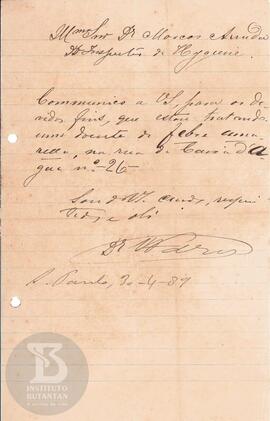 Illmo Snr Dr Marcos Arruda
D. Inspector de Hygiene.
Communico a VS, para os de-
vidos fins, que estou tratando
um doente de febre ama-
rella, na rua da Caixa d'A
gua nº 26-
Sou de VS.
Dr
S. Paulo, 30-4-89
INSTITUTO
BUTANTAN